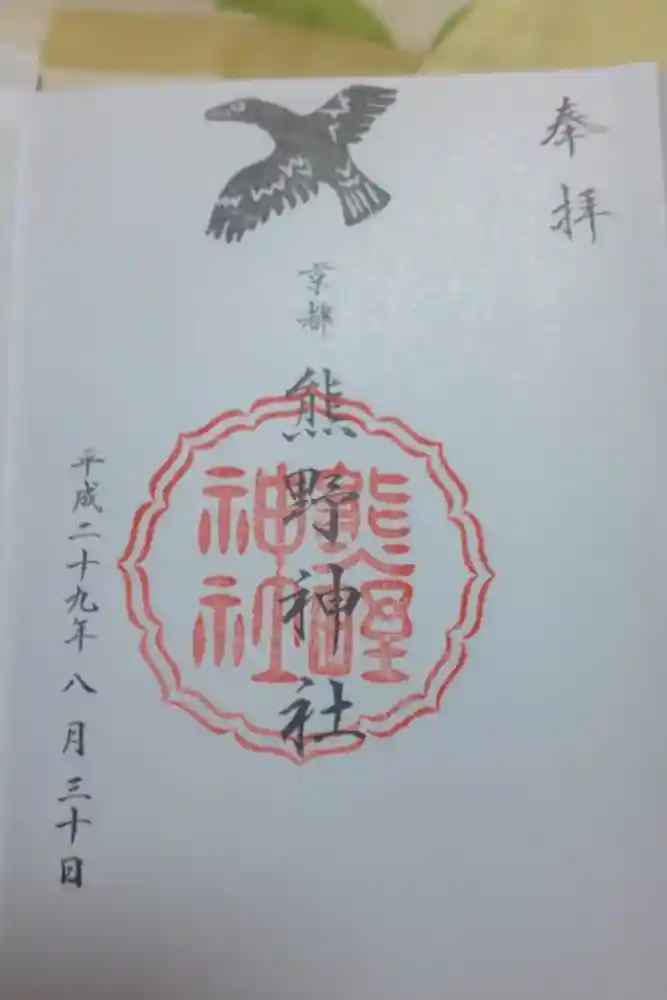 奉拝
京都
熊野神社
熊野
神社
平成二十九年八月三十日